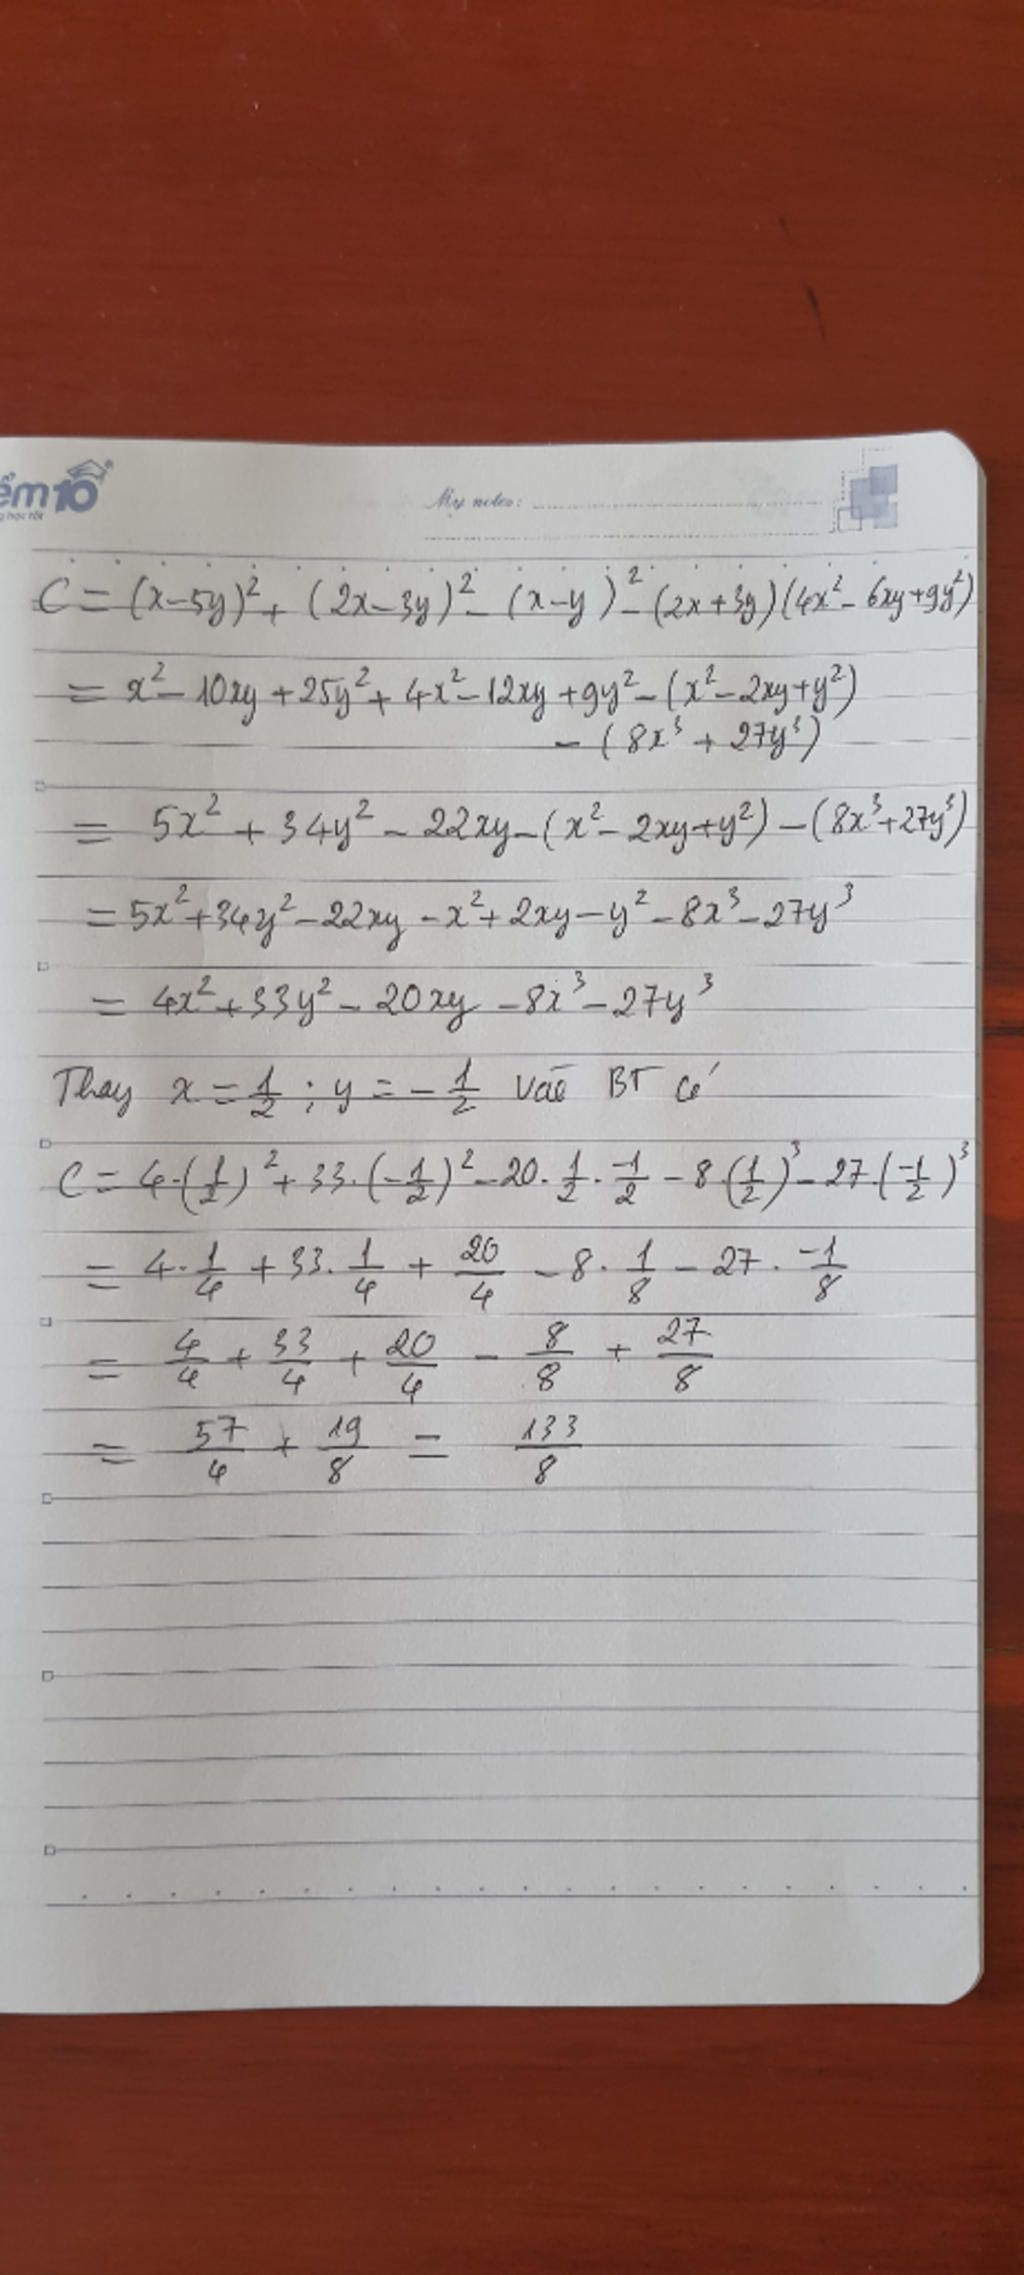 ểm10
g học tốt
My notes:
C = (x-5y)² + (2x-3y)² - (x-y)² - (2x+3y)(4x² - 6xy+9y²)
= x² - 10xy + 25y² + 4x² - 12xy + 9y² - (x² - 2xy+y²)
- (8x³ + 27y³)
= 5x² + 34y² - 22xy - (x² - 2xy+y²) - (8x³+27y³)
= 5x² + 34y² - 22xy - x² + 2xy - y² - 8x³ - 27y³
= 4x² + 33y² - 20xy - 8x³ - 27y³
Thay x = 1/2 ; y = - 1/2 vào BT có
C = 4·(1/2)² + 33·(-1/2)² - 20·1/2·-1/2 - 8·(1/2)³ - 27·(-1/2)³
= 4·1/4 + 33·1/4 + 20/4 - 8·1/8 - 27·-1/8
= 4/4 + 33/4 + 20/4 - 8/8 + 27/8
= 57/4 + 19/8 = 133/8